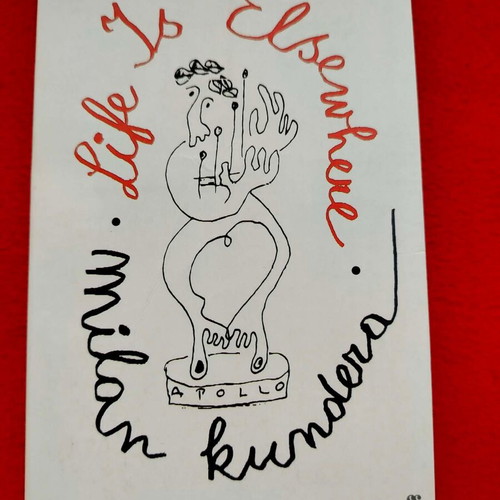 Life Is Elsewhere
APOLLO
Milan Kundera